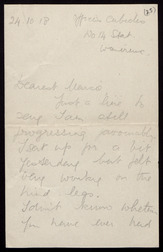 24.10.18 Officers
No 14 Stat
Wimereux
Dearest
Just a line to
say I am still
progressing favourably
I sat up for a bit
yesterday but felt
very wonky on the
hind legs.
I don't know whether
you have ever had